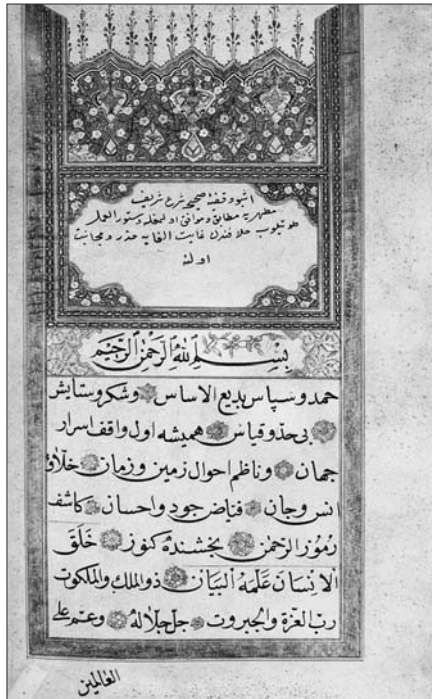 اشبو وقفیه صحیح شرع شریف
مطهره مطابق و موافق اولمغله دستور العمل
طوتیلوب خلافندن غایت الغایه حذر و مجانبت
اولنه
بِسْمِ اللّٰهِ الرَّحْمٰنِ الرَّحِيْمِ
حمد و سپاس بدیع الاساس و شکر و ستایش
بی حد و قیاس همیشه اول واقف اسرار
جهان و ناظم احوال زمین و زمان خلاق
انس و جان فیاض جود و احسان کاشف
رموز الرحمن بخشندۀ کنوز خَلَقَ
الْاِنْسَانَ عَلَّمَهُ الْبَيَانَ ذو الملك والملكوت
رب العزة والجبروت جل جلاله وعم على
العالمين